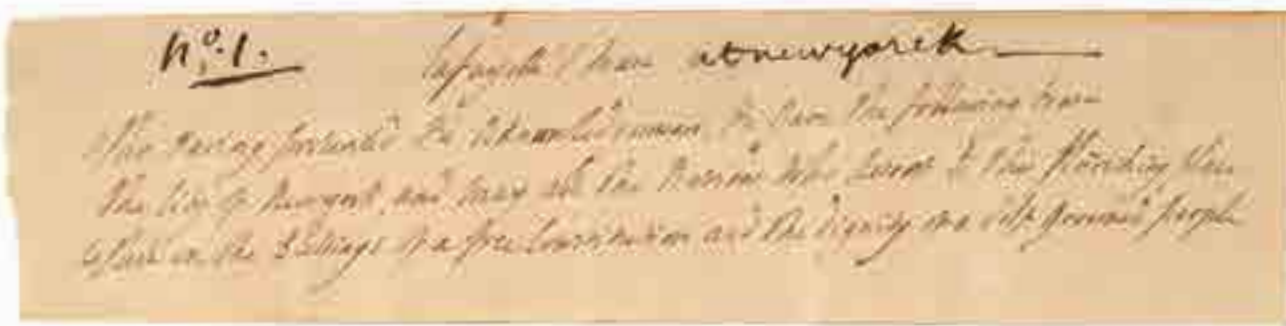 no. 1. Lafayette's toast at newyorck
After having presented his acknowledgements he gave the following toast
The City of Newyork, and may all the Nations who resort to this flourishing
share in the Blessings of a free Constitution and the dignity of a self governed people